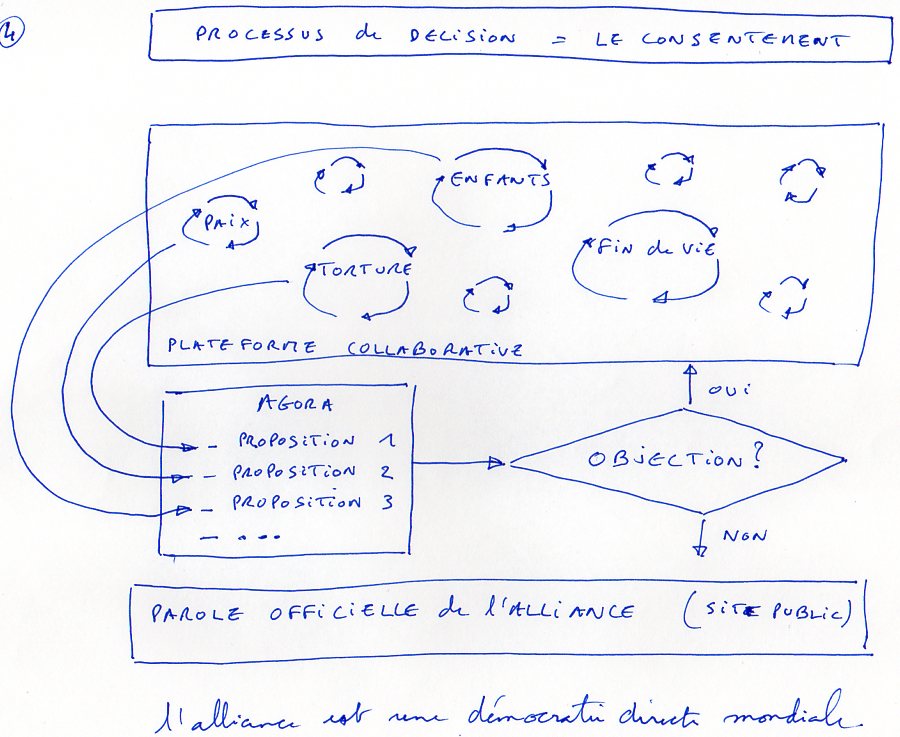 4
PROCESSUS de DECISION = LE CONSENTEMENT
ENFANTS
PAIX
FIN de VIE
TORTURE
PLATEFORME COLLABORATIVE
AGORA
OUI
- PROPOSITION 1
- PROPOSITION 2
- PROPOSITION 3
- ....
OBJECTION?
NON
PAROLE OFFICIELLE de l'ALLIANCE (SITE PUBLIC)
l'alliance est une démocratie directe mondiale.